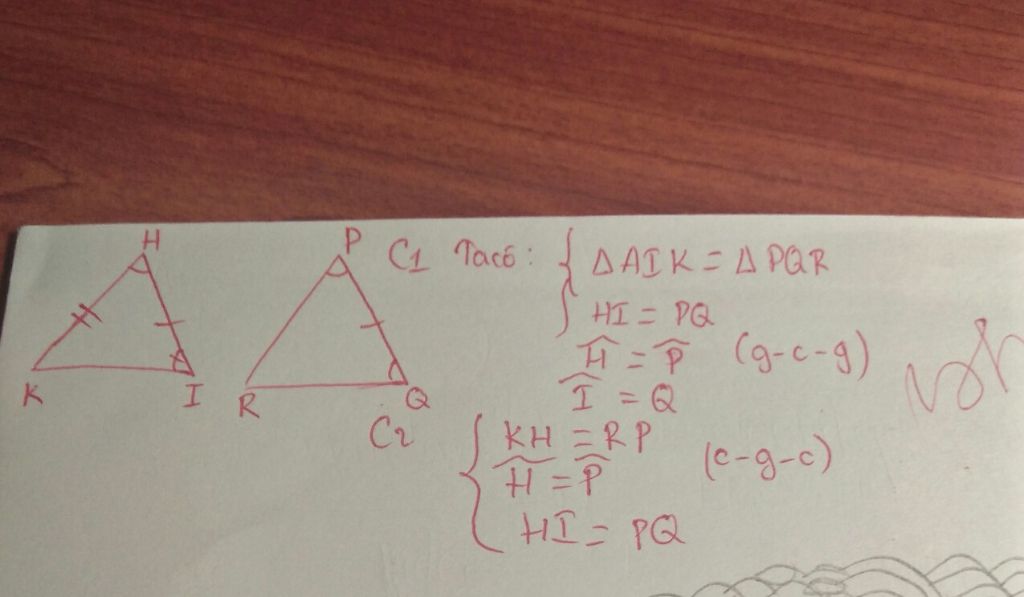 H
K
I
P
R
Q
C1 Tacó: { ΔAIK = ΔPQR
HI = PQ
Ĥ = P̂ (g-c-g)
Î = Q
C2
{ KH = RP
Ĥ = P̂ (c-g-c)
HI = PQ